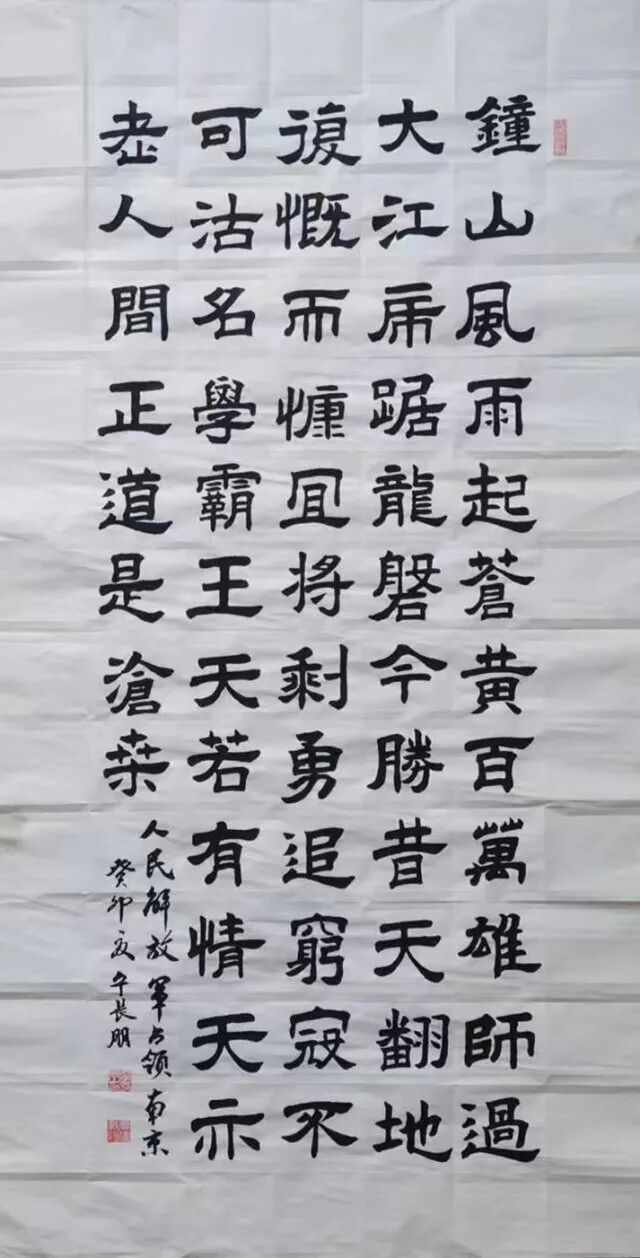 鐘山風雨起蒼黄百萬雄師過
大江虎踞龍磐今勝昔天翻地
復慨而慷宜将剩勇追窮寇不
可沽名學霸王天若有情天亦
老人間正道是滄桑
人民解放軍占領南京
癸卯夏長朋